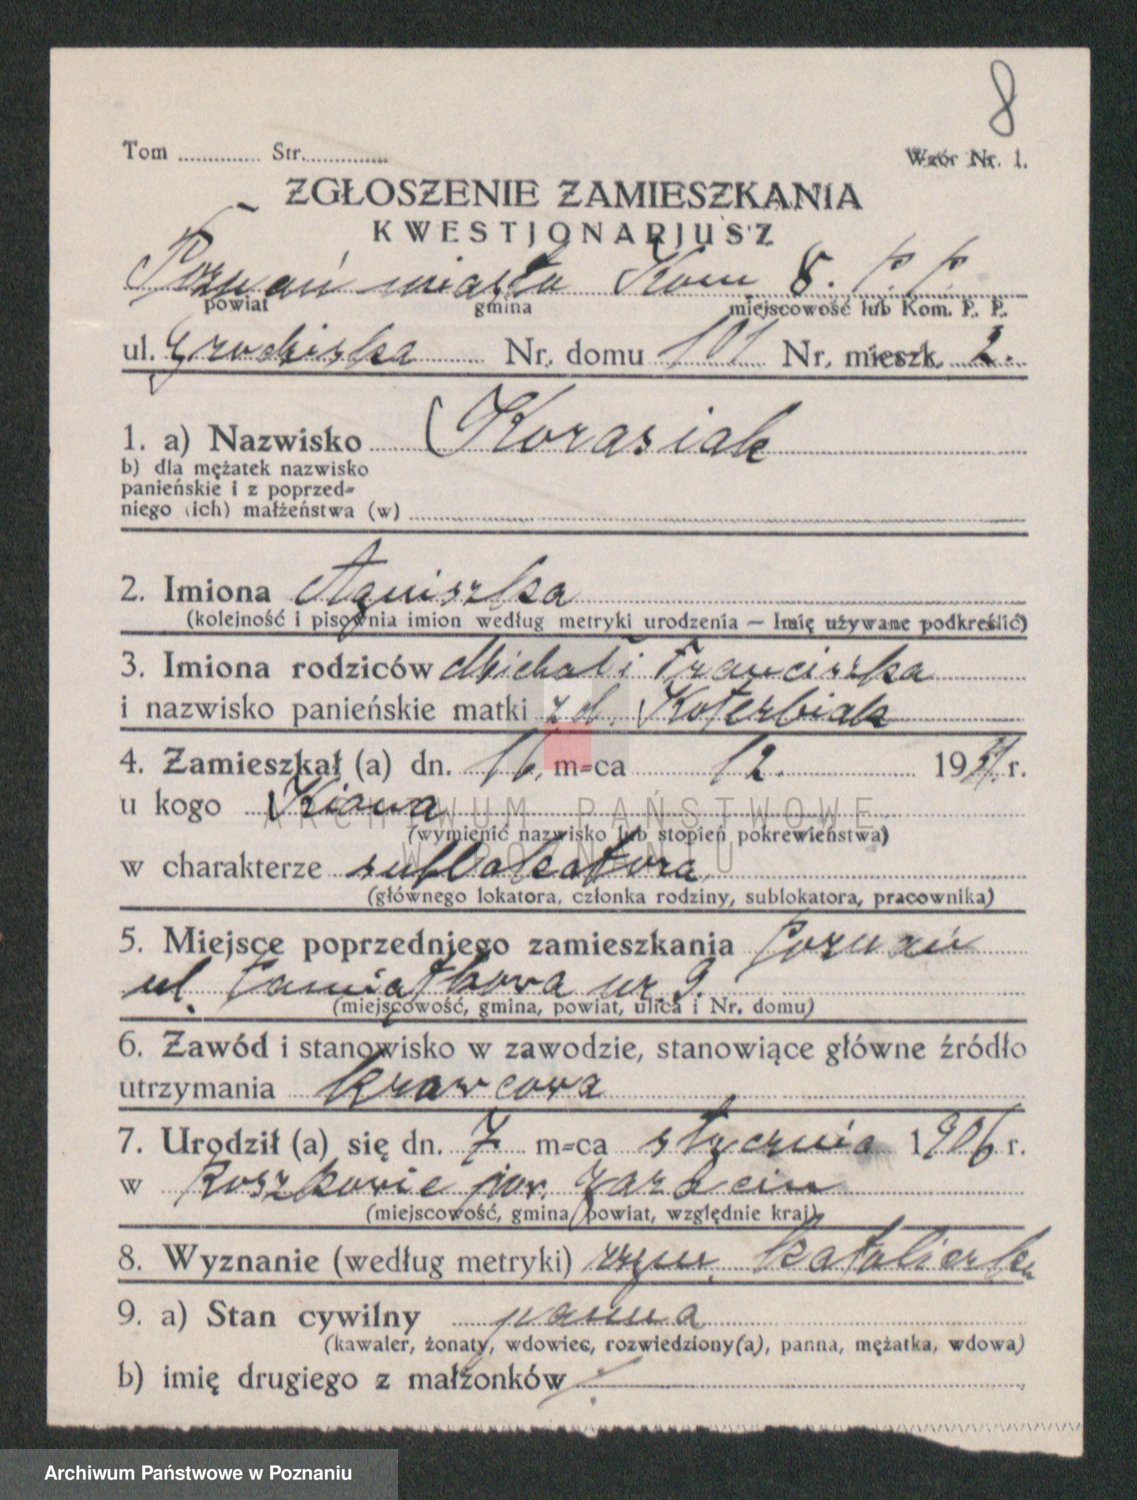 8
Tom Str.
Wzór Nr. 1.
ZGŁOSZENIE ZAMIESZKANIA
KWESTJONARJUSZ
Poznań miasto Kom 8. P. P.
powiat gmina miejscowość lub Kom. P. P.
ul. Grodziska Nr. domu 101 Nr. mieszk. 2.
1. a) Nazwisko Korasiak
b) dla mężatek nazwisko
panieńskie i z poprzed-
niego (ich) małżeństwa (w)
2. Imiona Agniszka
(kolejność i pisownia imion według metryki urodzenia — Imię używane podkreślić)
3. Imiona rodziców Michał i Franciszka
i nazwisko panieńskie matki z d. Koterbiak
4. Zamieszkał (a) dn. 16. m-ca 12. 1931 r.
u kogo
ARCHIWUM PAŃSTWOWE
(wymienić nazwisko lub stopień pokrewieństwa)
W POZNANIU
w charakterze sublokatora
(głównego lokatora, członka rodziny, sublokatora, pracownika)
5. Miejsce poprzedniego zamieszkania Poznań
ul. Pamiątkowa nr 9.
(miejscowość, gmina, powiat, ulica i Nr. domu)
6. Zawód i stanowisko w zawodzie, stanowiące główne źródło
utrzymania krawcowa
7. Urodził (a) się dn. 7 m-ca stycznia 1906 r.
w Roszkowie pow. Jarocin
(miejscowość, gmina, powiat, względnie kraj)
8. Wyznanie (według metryki) rzym. katolickie
9. a) Stan cywilny panna
(kawaler, żonaty, wdowiec, rozwiedziony(a), panna, mężatka, wdowa)
b) imię drugiego z małżonków
Archiwum Państwowe w Poznaniu